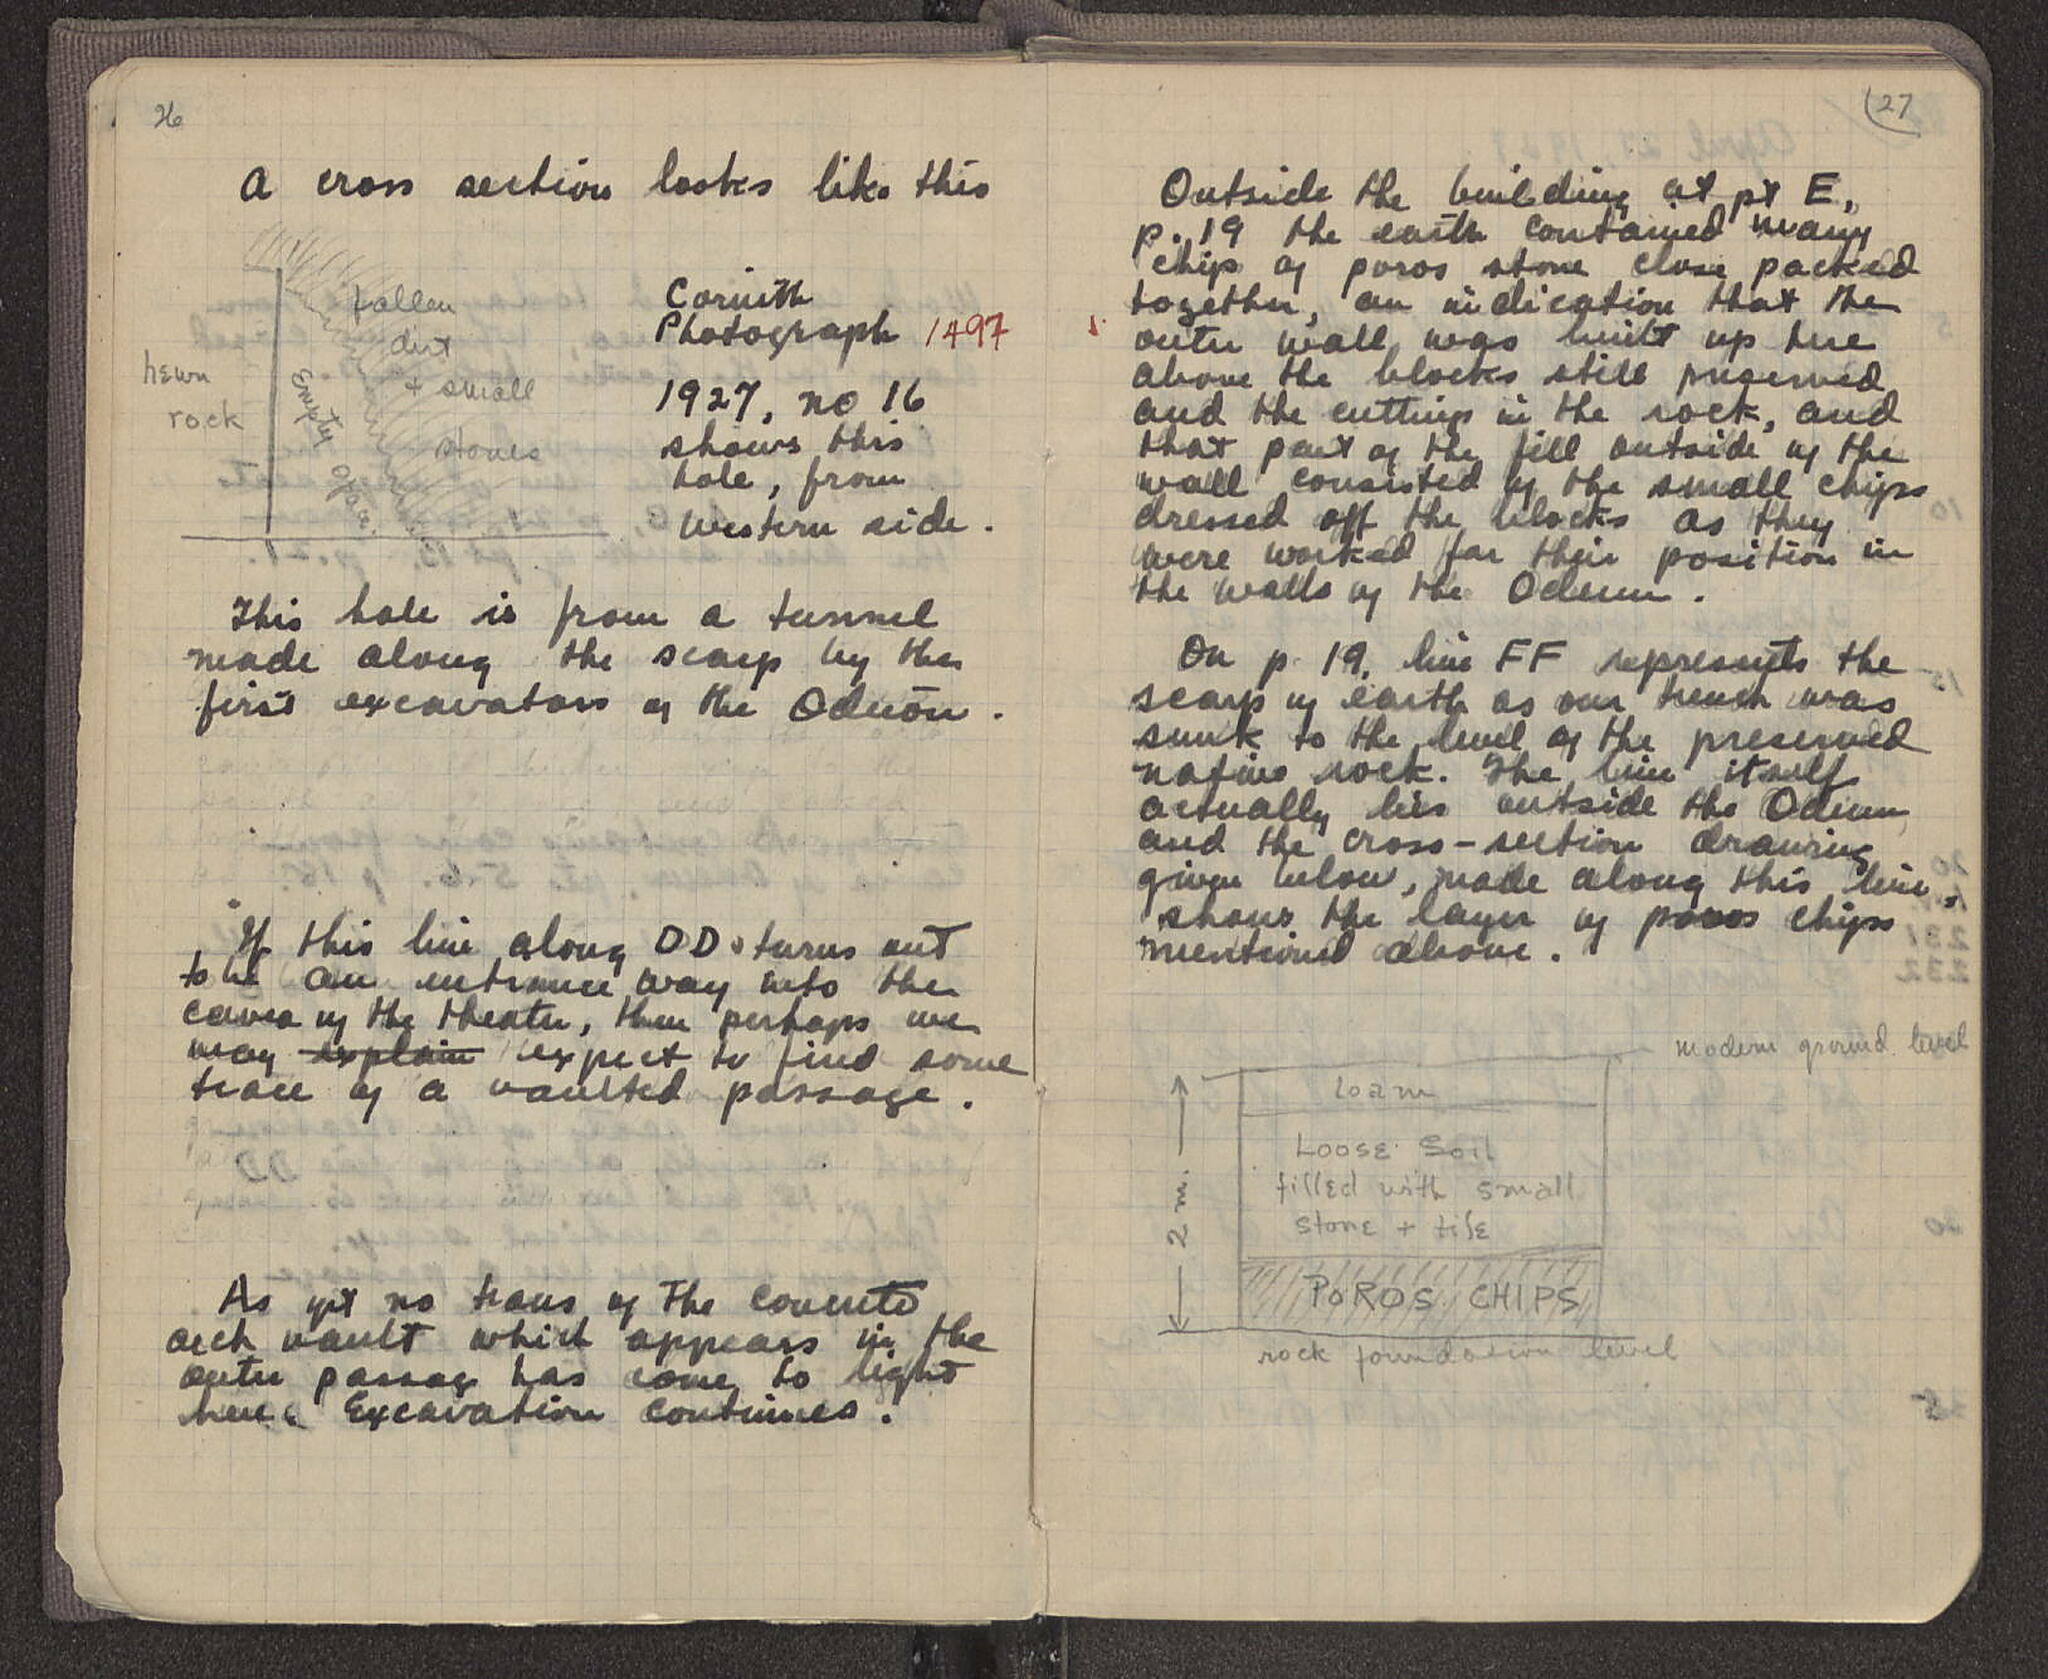 26
A cross section looks like this
fallen
dirt
+ small
stones
hewn
rock
Empty
space.
Corinth
Photograph 1497
1927, no 16
shows this
hole, from
western side.
This hole is from a tunnel
made along the scarp by the
first excavators of the Odeion.
If this line along DD turns out
to be an entrance way into the
cavea of the theater, then perhaps we
may explain expect to find some
trace of a vaulted passage.
As yet no traces of the concrete
arch vault which appears in the
outer passage has come to light
here. Excavation continues.
27
Outside the building at pt E,
p. 19 the earth contained many
chips of poros stone close packed
together, an indication that the
outer wall was built up here
above the blocks still preserved
and the cuttings in the rock, and
that part of the fill outside of the
wall consisted of the small chips
dressed off the blocks as they
were worked for their position in
the walls of the Odeum.
On p. 19, line FF represents the
scarp of earth as our trench was
sunk to the level of the preserved
native rock. The line itself
actually lies outside the Odeum
and the cross-section drawing
given below, made along this line,
shows the layer of poros chips
mentioned above.
modern ground level
loam
Loose Soil
filled with small
stone + tile
2 m.
POROS CHIPS
rock foundation level